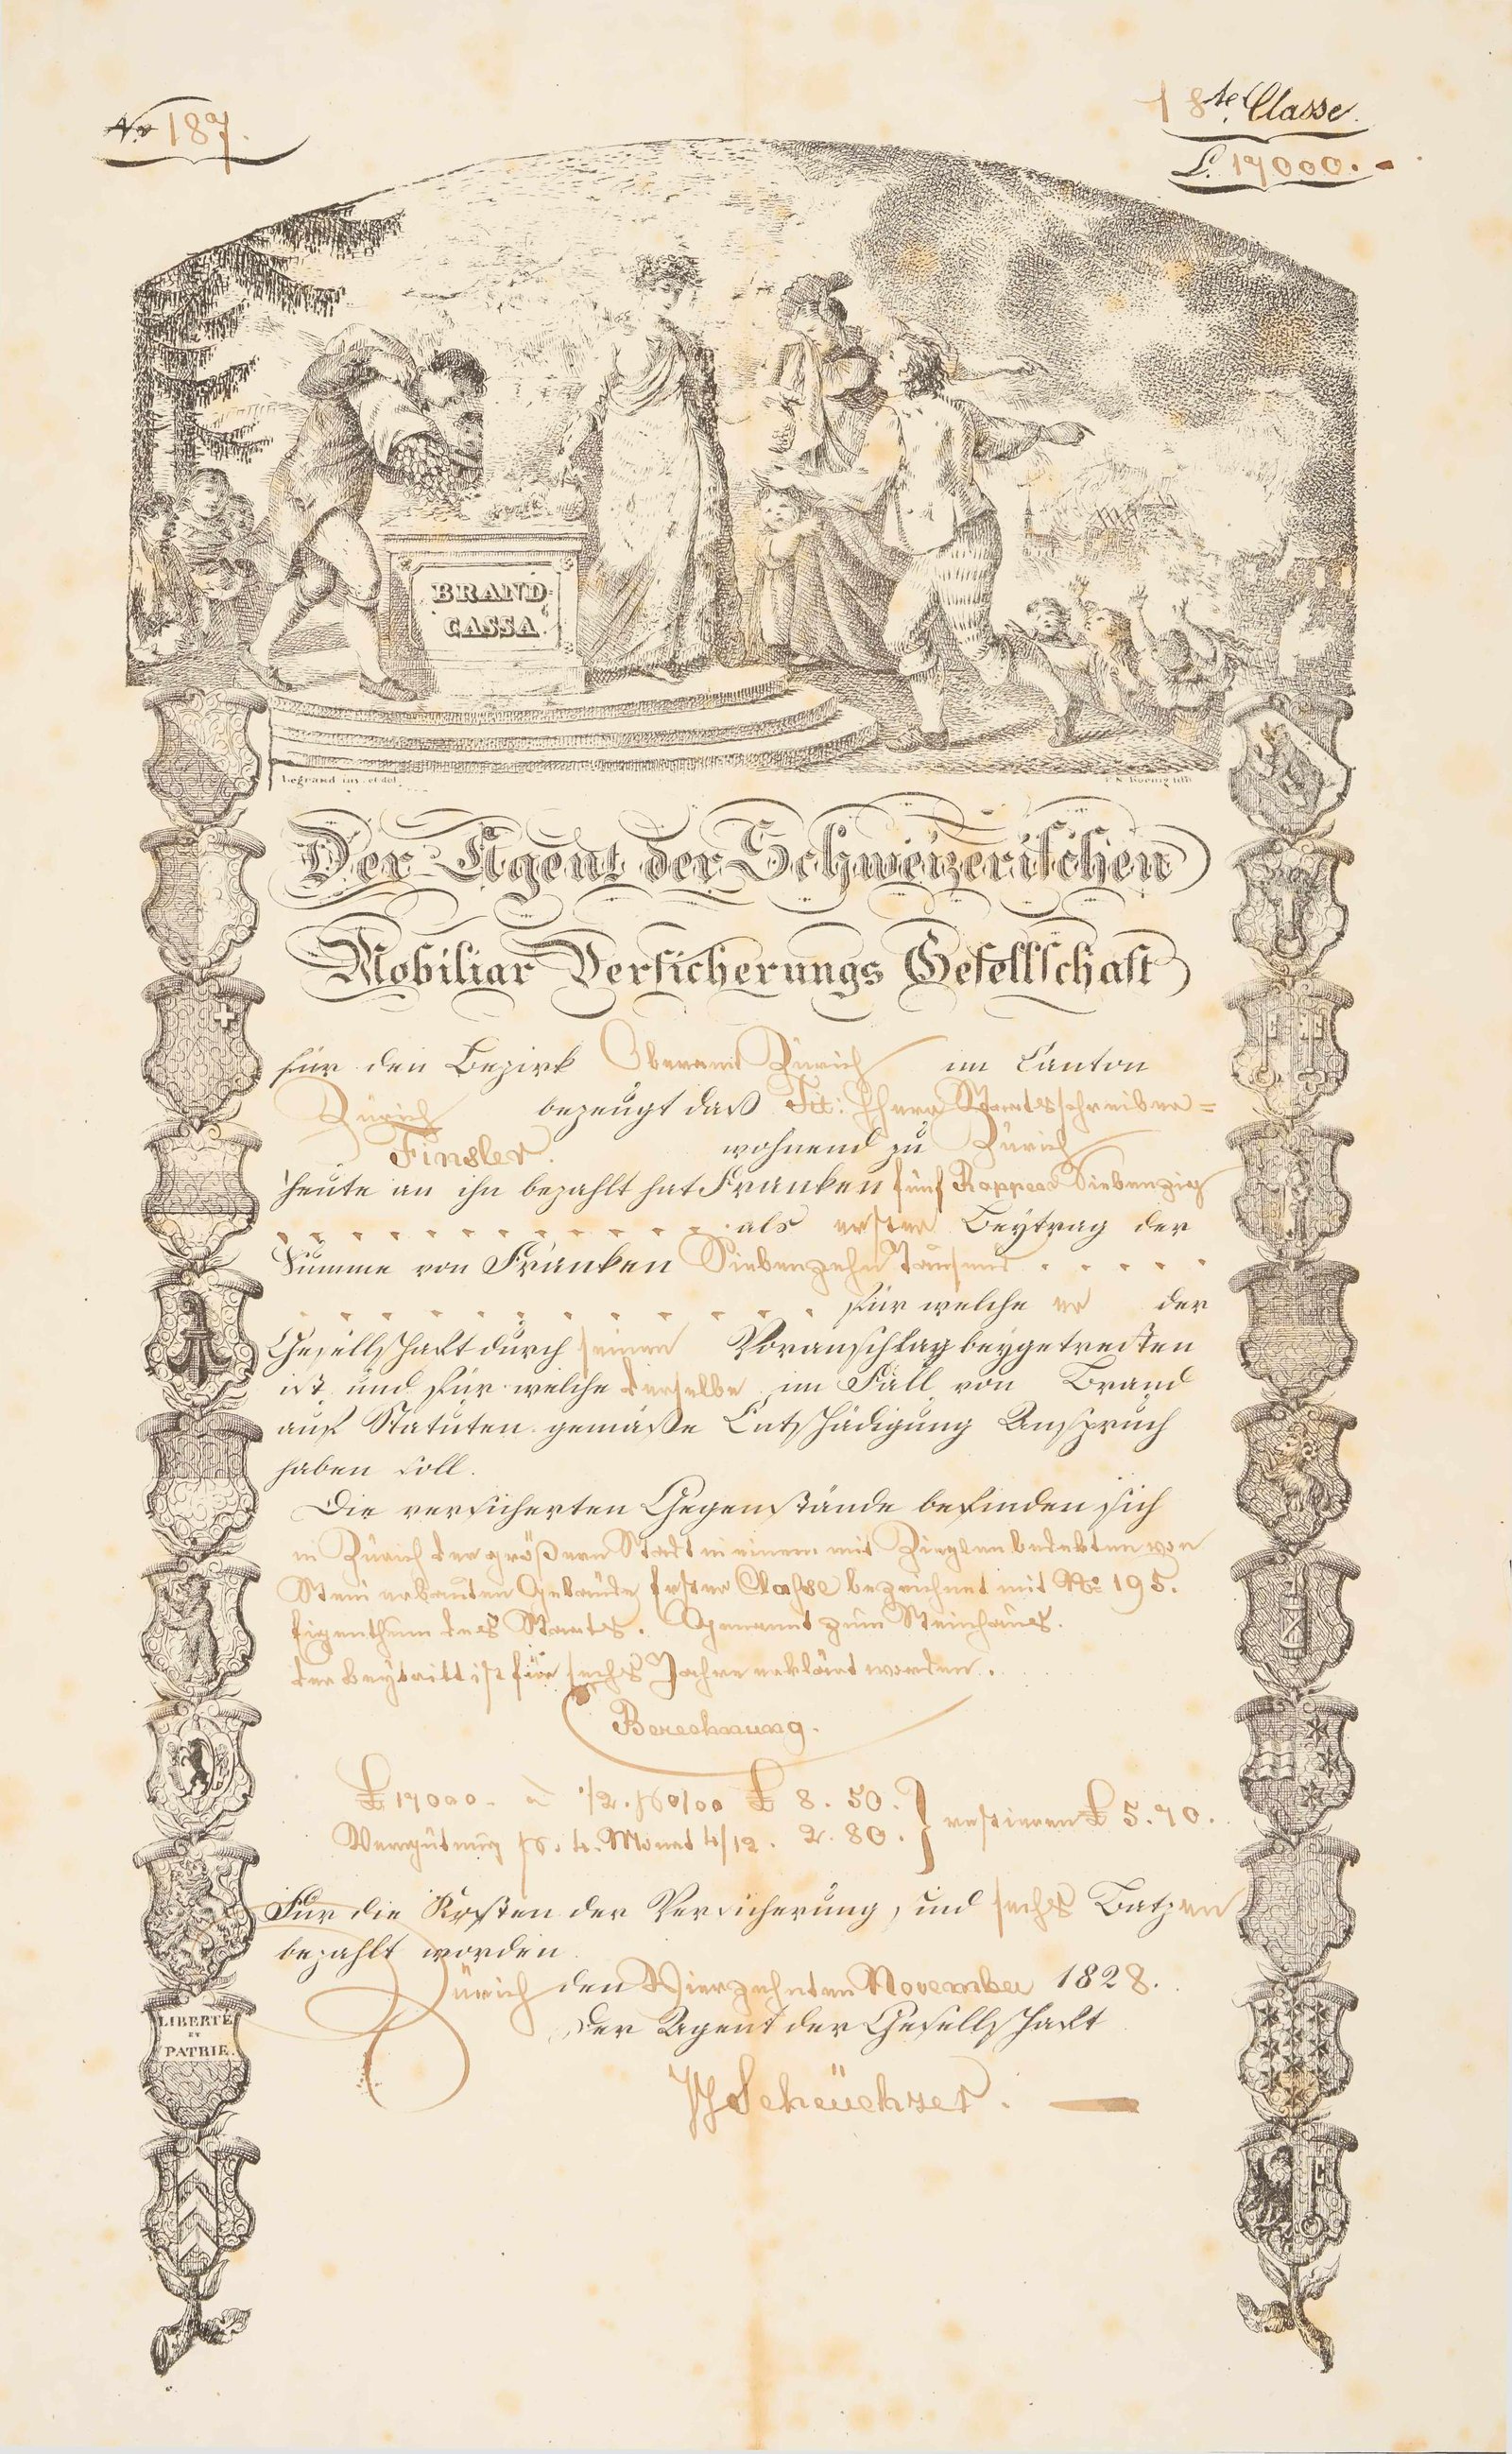 No 187.
18te Classe.
L. 17000.-
BRAND-
CASSA.
Legrand inv. et del.
F. N. Koenig lith.
Der Agent der Schweizerischen
Mobiliar Versicherungs Gesellschaft
für den Bezirk Oberamt Zürich im Canton
Zürich bezeugt daß Tit: Herr Staatsschreiber=
Finsler. wohnend zu Zürich
heute an ihn bezahlt hat Franken fünf Rappen Siebenzig
als erster Beytrag der
Summe von Franken Siebenzehn Tausend . . . . .
für welche er der
Gesellschaft durch seinen Voranschlag beygetretten
ist und für welche derselbe im Fall von Brand
auf Statuten gemäße Entschädigung Anspruch
haben soll.
Die versicherten Gegenstände befinden sich
in Zürich der größern Stadt in einem mit Zieglen bedekten von
Stein erbauten Gebäude erster Classe bezeichnet mit No 195.
Eigenthum des Staates. Genannt zum Steinhaus.
der Beytritt ist für sechs Jahre erklärt worden.
Berechnung.
£ 17000.- à 1/2. p 0/00 £ 8. 50. } restieren £ 5. 70.
Vergütung p. 4. Monat 4/12. 2. 80.
Für die Kosten der Versicherung, sind sechs Batzen
bezahlt worden.
Zürich den Vierzehnten November 1828.
Der Agent der Gesellschaft
Scheuchzer.
LIBERTÉ
ET
PATRIE.